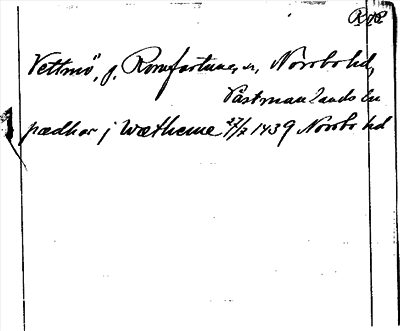 Vettmö, j, Romfartuna, sn, Norrbo hd,
Västmanlands län
pædhar j Wætheme 27/7 1439 Norrbo hd